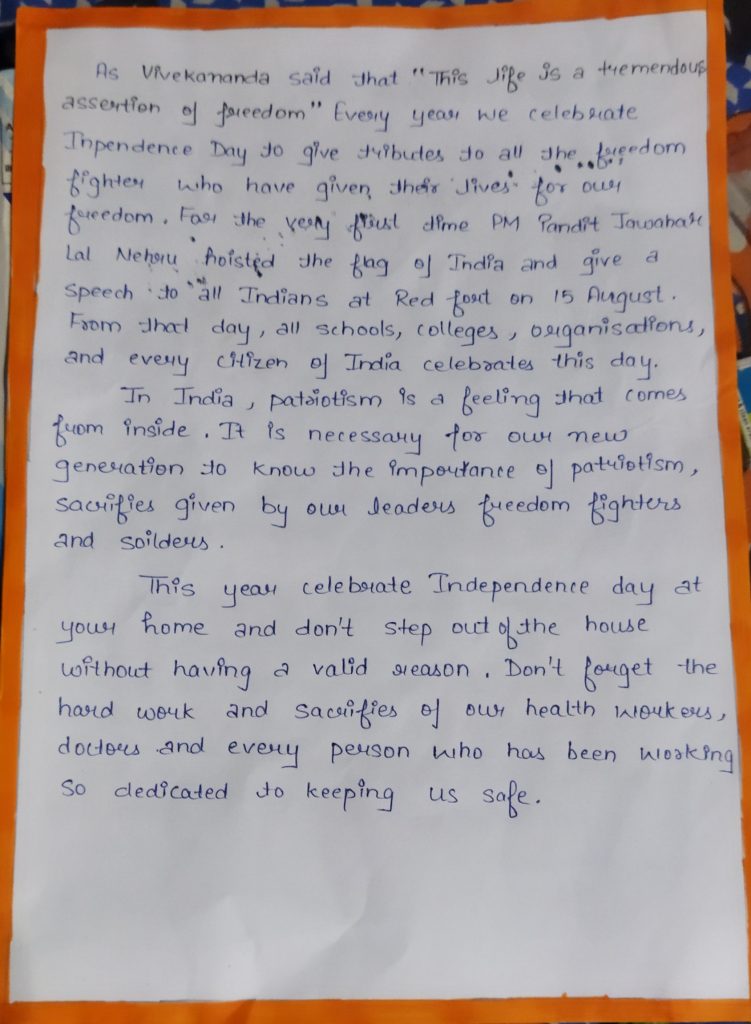 As Vivekananda said that "This life is a tremendous
assertion of freedom" Every year we celebrate
Inpendence Day to give tributes to all the freedom
fighter who have given their lives for our
freedom. For the very first time PM Pandit Jawahar
Lal Nehru hoisted the flag of India and give a
speech to all Indians at Red fort on 15 August.
From that day, all schools, colleges, organisations,
and every citizen of India celebrates this day.
In India, patriotism is a feeling that comes
from inside. It is necessary for our new
generation to know the importance of patriotism,
sacrifies given by our leaders freedom fighters
and soilders.
This year celebrate Independence day at
your home and don't step out of the house
without having a valid reason. Don't forget the
hard work and sacrifies of our health workers,
doctors and every person who has been working
so dedicated to keeping us safe.